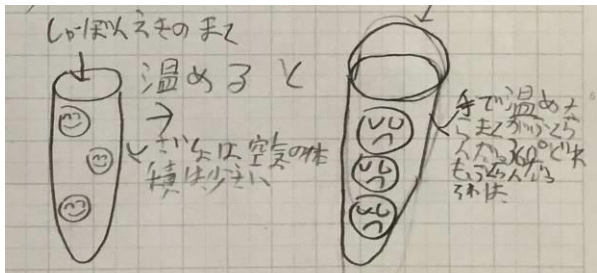 しゃぼんえきのまく
温めると
さいしょは、空気の体
積は少さい
手で温めた
らまくがふくら
んだ。360°どれ
もふくらんだ。
それは、